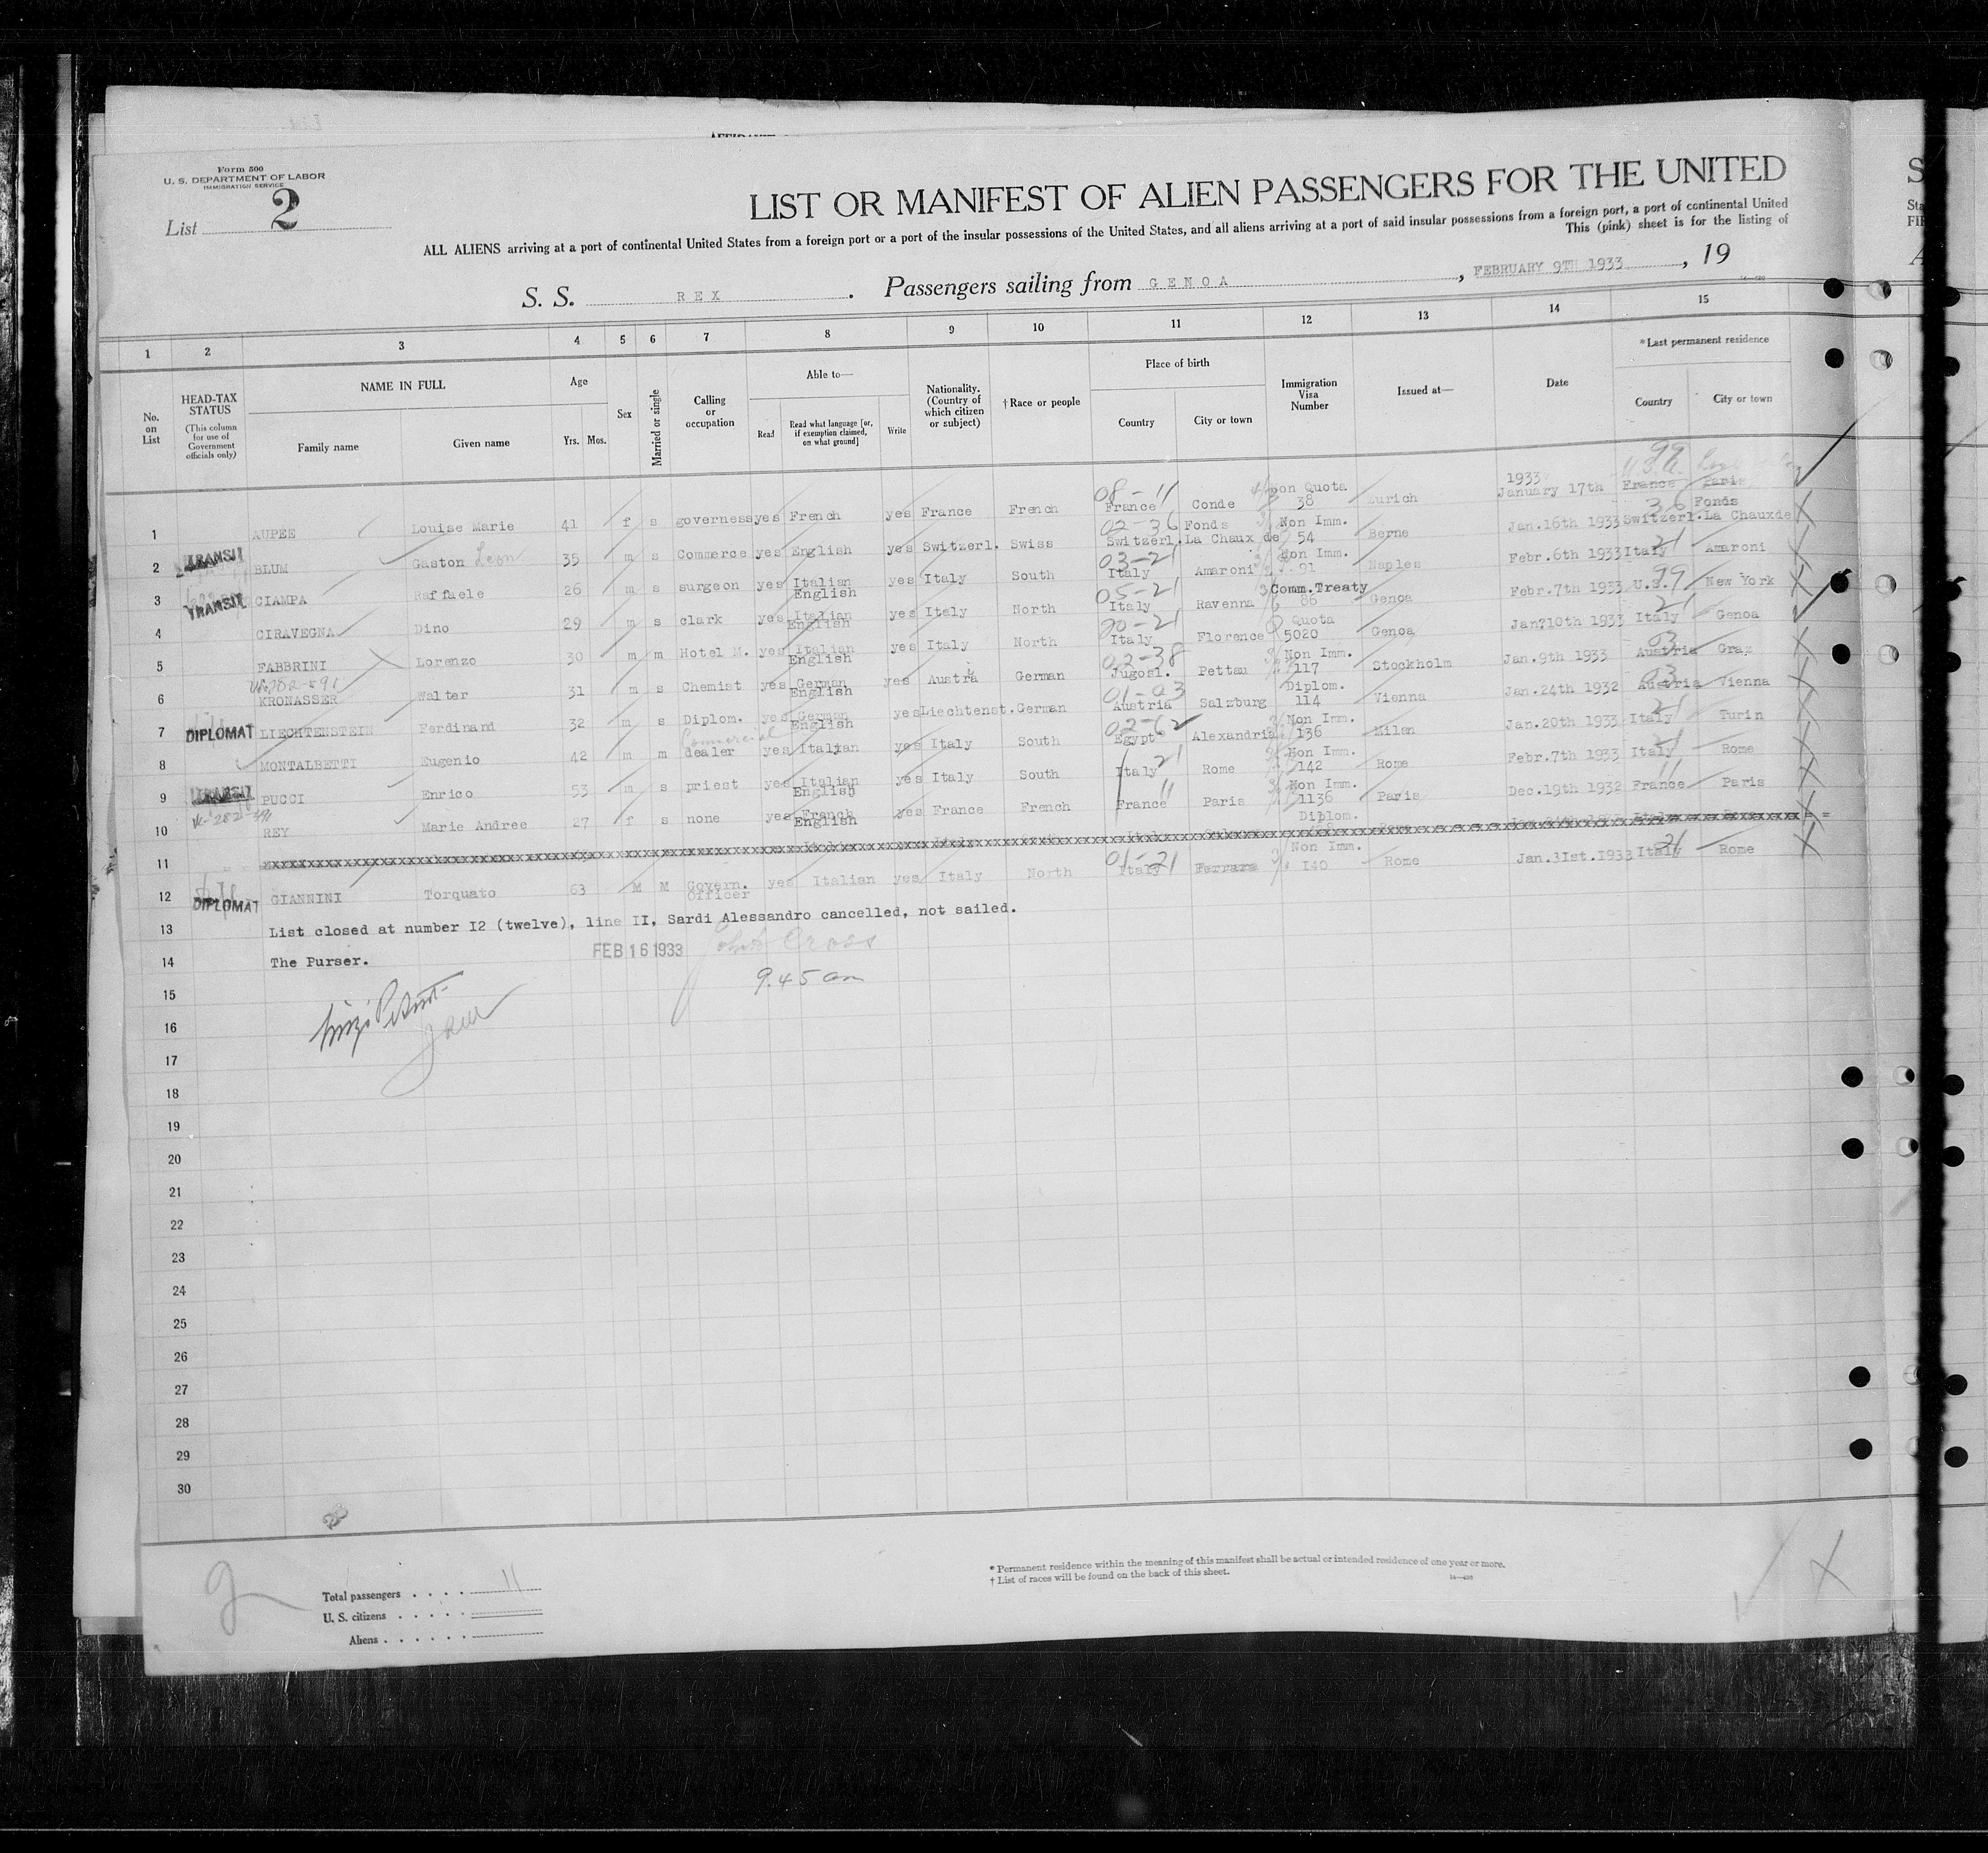 Form 500
U. S. DEPARTMENT OF LABOR
IMMIGRATION SERVICE
List 2
LIST OR MANIFEST OF ALIEN PASSENGERS FOR THE UNITED
ALL ALIENS arriving at a port of continental United States from a foreign port or a port of the insular possessions of the United States, and all aliens arriving at a port of said insular possessions from a foreign port, a port of continental United
This (pink) sheet is for the listing of
S. S. REX. Passengers sailing from GENOA, FEBRUARY 9TH 1933, 19
1 2 3 4 5 6 7 8 9 10 11 12 13 14 15
No. on List
HEAD-TAX STATUS (This column for use of Government officials only)
NAME IN FULL
Family name Given name
Age
Yrs. Mos.
Sex
Married or single
Calling or occupation
Able to—
Read
Read what language [or, if exemption claimed, on what ground]
Write
Nationality. (Country of which citizen or subject)
† Race or people
Place of birth
Country City or town
Immigration Visa Number
Issued at—
Date
* Last permanent residence
Country City or town
1 AUPEE Louise Marie 41 f s governess yes French yes France French 08-11 France Conde Non Quota 38 Zurich 1933 January 17th 99 U.S.A. France Paris
2 TRANSIT BLUM Gaston Leon 35 m s Commerce yes English yes Switzerl. Swiss 02-36 Switzerl. La Chaux de Fonds Non Imm. 54 Berne Jan.16th 1933 36 Switzerl. La Chauxde Fonds
3 TRANSIT CIAMPA Raffaele 26 m s surgeon yes Italian English yes Italy South 03-21 Italy Amaroni Non Imm. 91 Naples Febr.6th 1933 21 Italy Amaroni
4 CIRAVEGNA Dino 29 m s clark yes Italian English yes Italy North 05-21 Italy Ravenna Comm.Treaty 86 Genoa Febr.7th 1933 99 U.S. New York
5 FABBRINI Lorenzo 30 m m Hotel M. yes Italian English yes Italy North 20-21 Italy Florence Quota 5020 Genoa Jan?10th 1933 21 Italy Genoa
6 KRONASSER Walter 31 m s Chemist yes German English yes Austria German 02-38 Jugosl. Pettau Non Imm. 117 Stockholm Jan.9th 1933 03 Austria Graz
7 DIPLOMAT LIECHTENSTEIN Ferdinand 32 m s Diplom. yes German English yes Liechtenst. German 01-03 Austria Salzburg Diplom. 114 Vienna Jan.24th 1932 03 Austria Vienna
8 MONTALBETTI Eugenio 42 m m Commercial dealer yes Italian yes Italy South 02-62 Egypt Alexandria Non Imm. 136 Milan Jan.20th 1933 21 Italy Turin
9 TRANSIT PUCCI Enrico 53 m s priest yes Italian English yes Italy South 21 Italy Rome Non Imm. 142 Rome Febr.7th 1933 21 Italy Rome
10 REY Marie Andree 27 f s none yes French English yes France French 11 France Paris Non Imm. 1136 Paris Dec.19th 1932 11 France Paris
11 Diplom.
12 DIPLOMAT GIANNINI Torquato 63 M M Govern. Officer yes Italian yes Italy North 01-21 Italy Ferrara Non Imm. 140 Rome Jan.3Ist.1933 21 Italy Rome
13 List closed at number I2 (twelve), line II, Sardi Alessandro cancelled, not sailed.
FEB 16 1933
14 The Purser.
9.45 am
15
16
17
18
19
20
21
22
23
24
25
26
27
28
29
30
Total passengers . . . . 11
U. S. citizens . . . . .
Aliens . . . . . .
* Permanent residence within the meaning of this manifest shall be actual or intended residence of one year or more.
† List of races will be found on the back of this sheet.